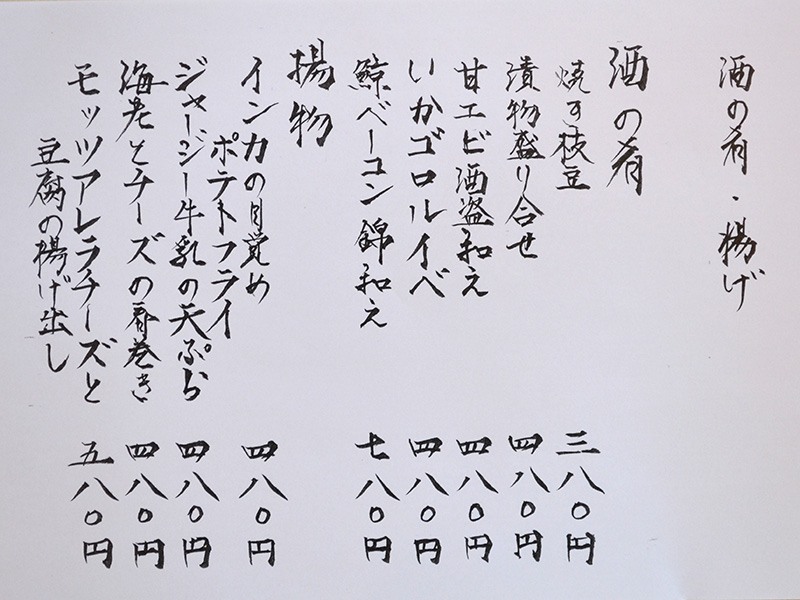 酒の肴・揚げ
酒の肴
焼き枝豆 三八〇円
漬物盛り合せ 四八〇円
甘エビ酒盗和え 四八〇円
いかゴロルイベ 四八〇円
鯨ベーコン錦和え 七八〇円
揚物
インカの目覚め
ポテトフライ 四八〇円
ジャージー牛乳の天ぷら 四八〇円
海老とチーズの春巻き 四八〇円
モッツアレラチーズと
豆腐の揚げ出し 五八〇円